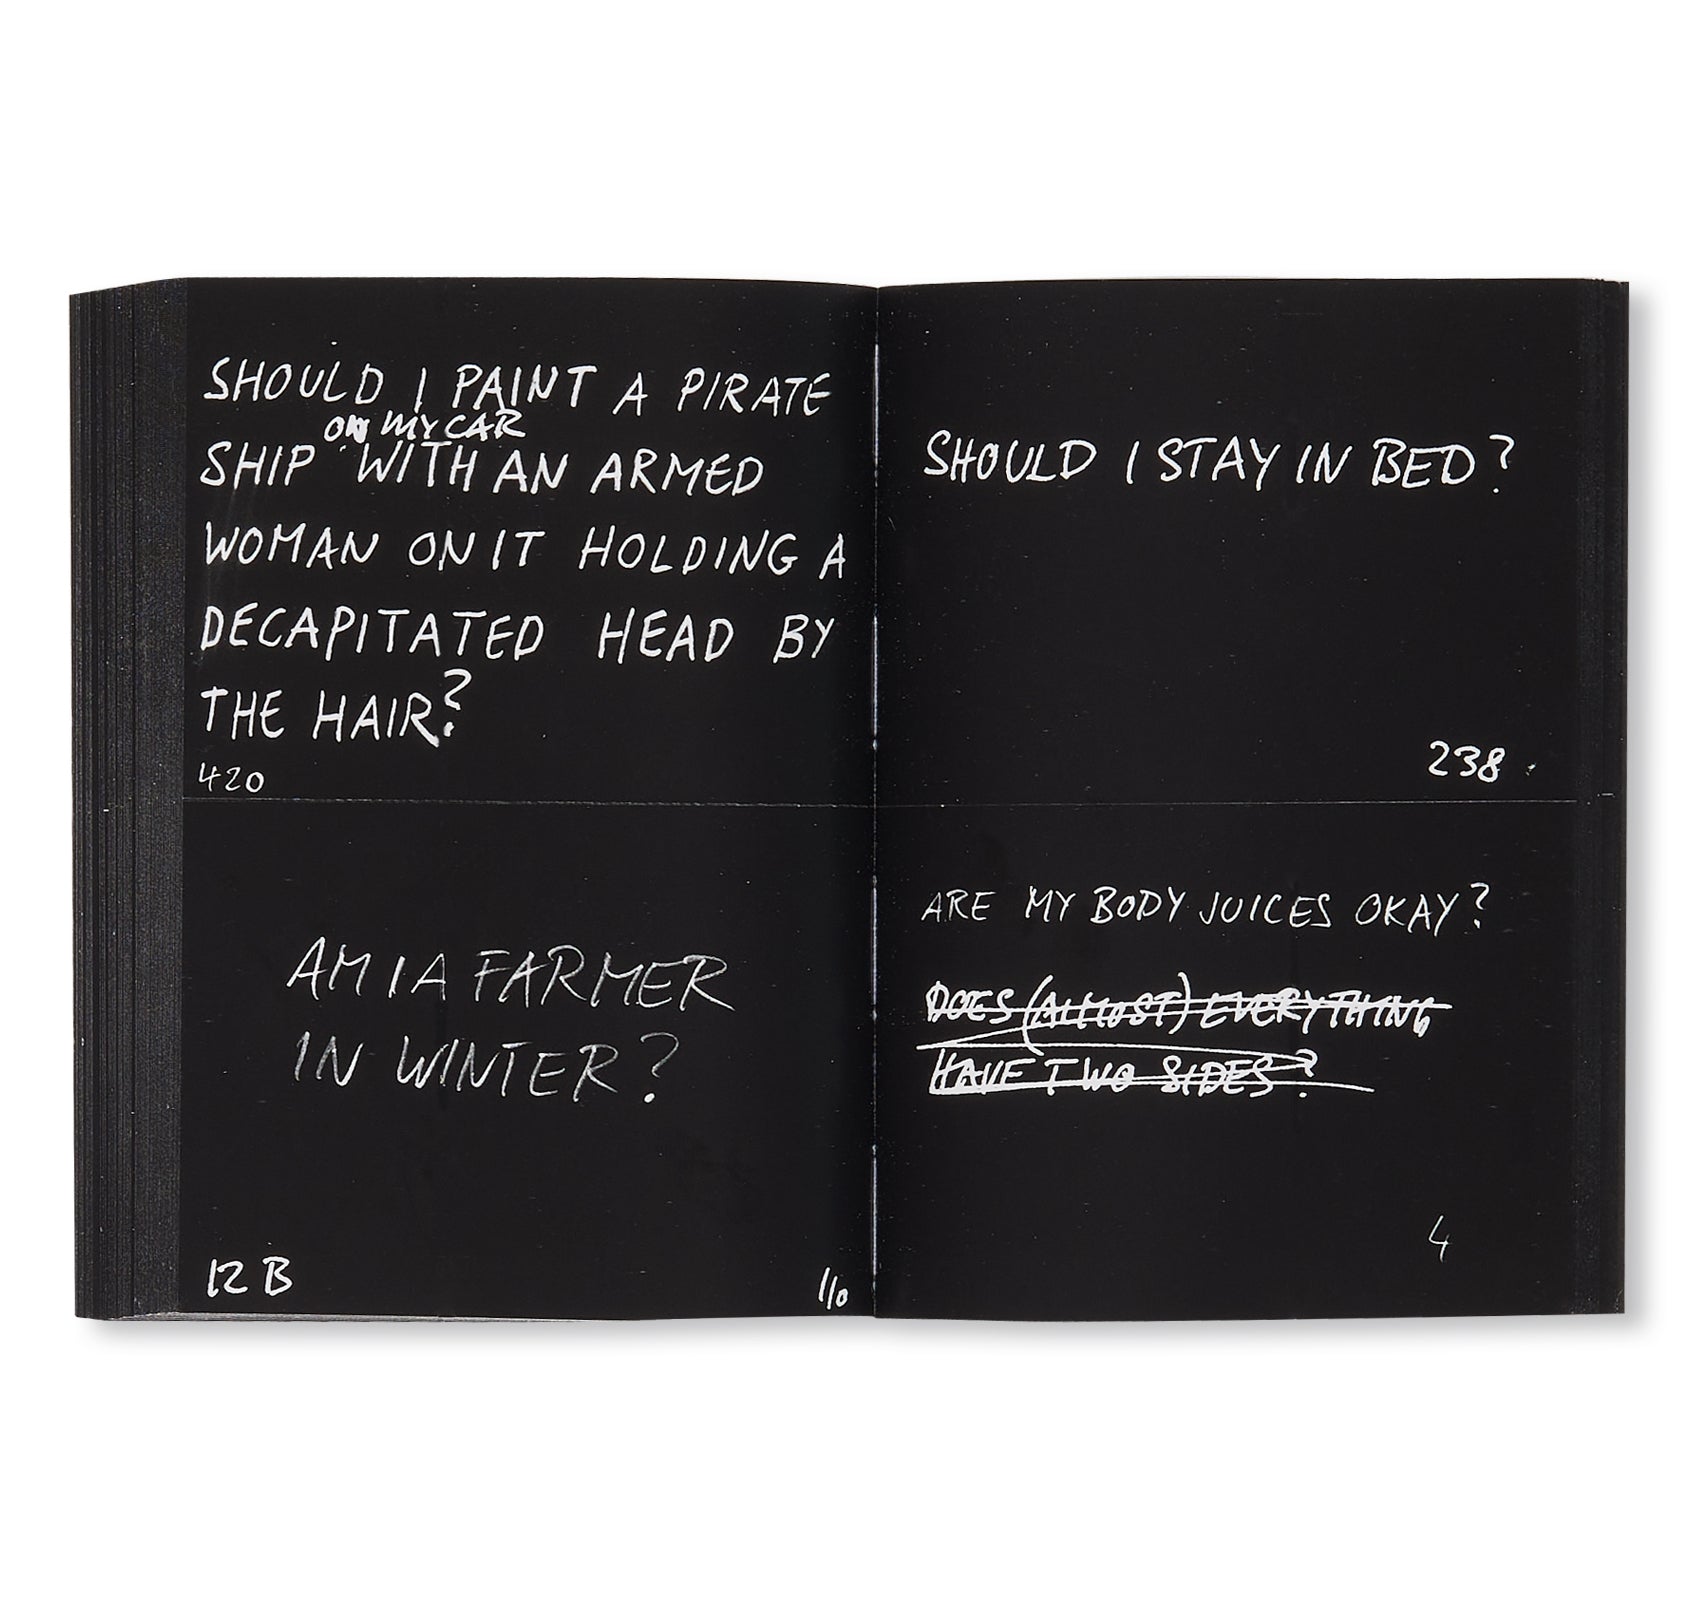 SHOULD I PAINT A PIRATE
ON MY CAR
SHIP WITH AN ARMED
WOMAN ON IT HOLDING A
DECAPITATED HEAD BY
THE HAIR?
420
AM I A FARMER
IN WINTER?
12 B
1/0
SHOULD I STAY IN BED?
238
ARE MY BODY JUICES OKAY?
DOES (ALMOST) EVERYTHING
HAVE TWO SIDES?
4